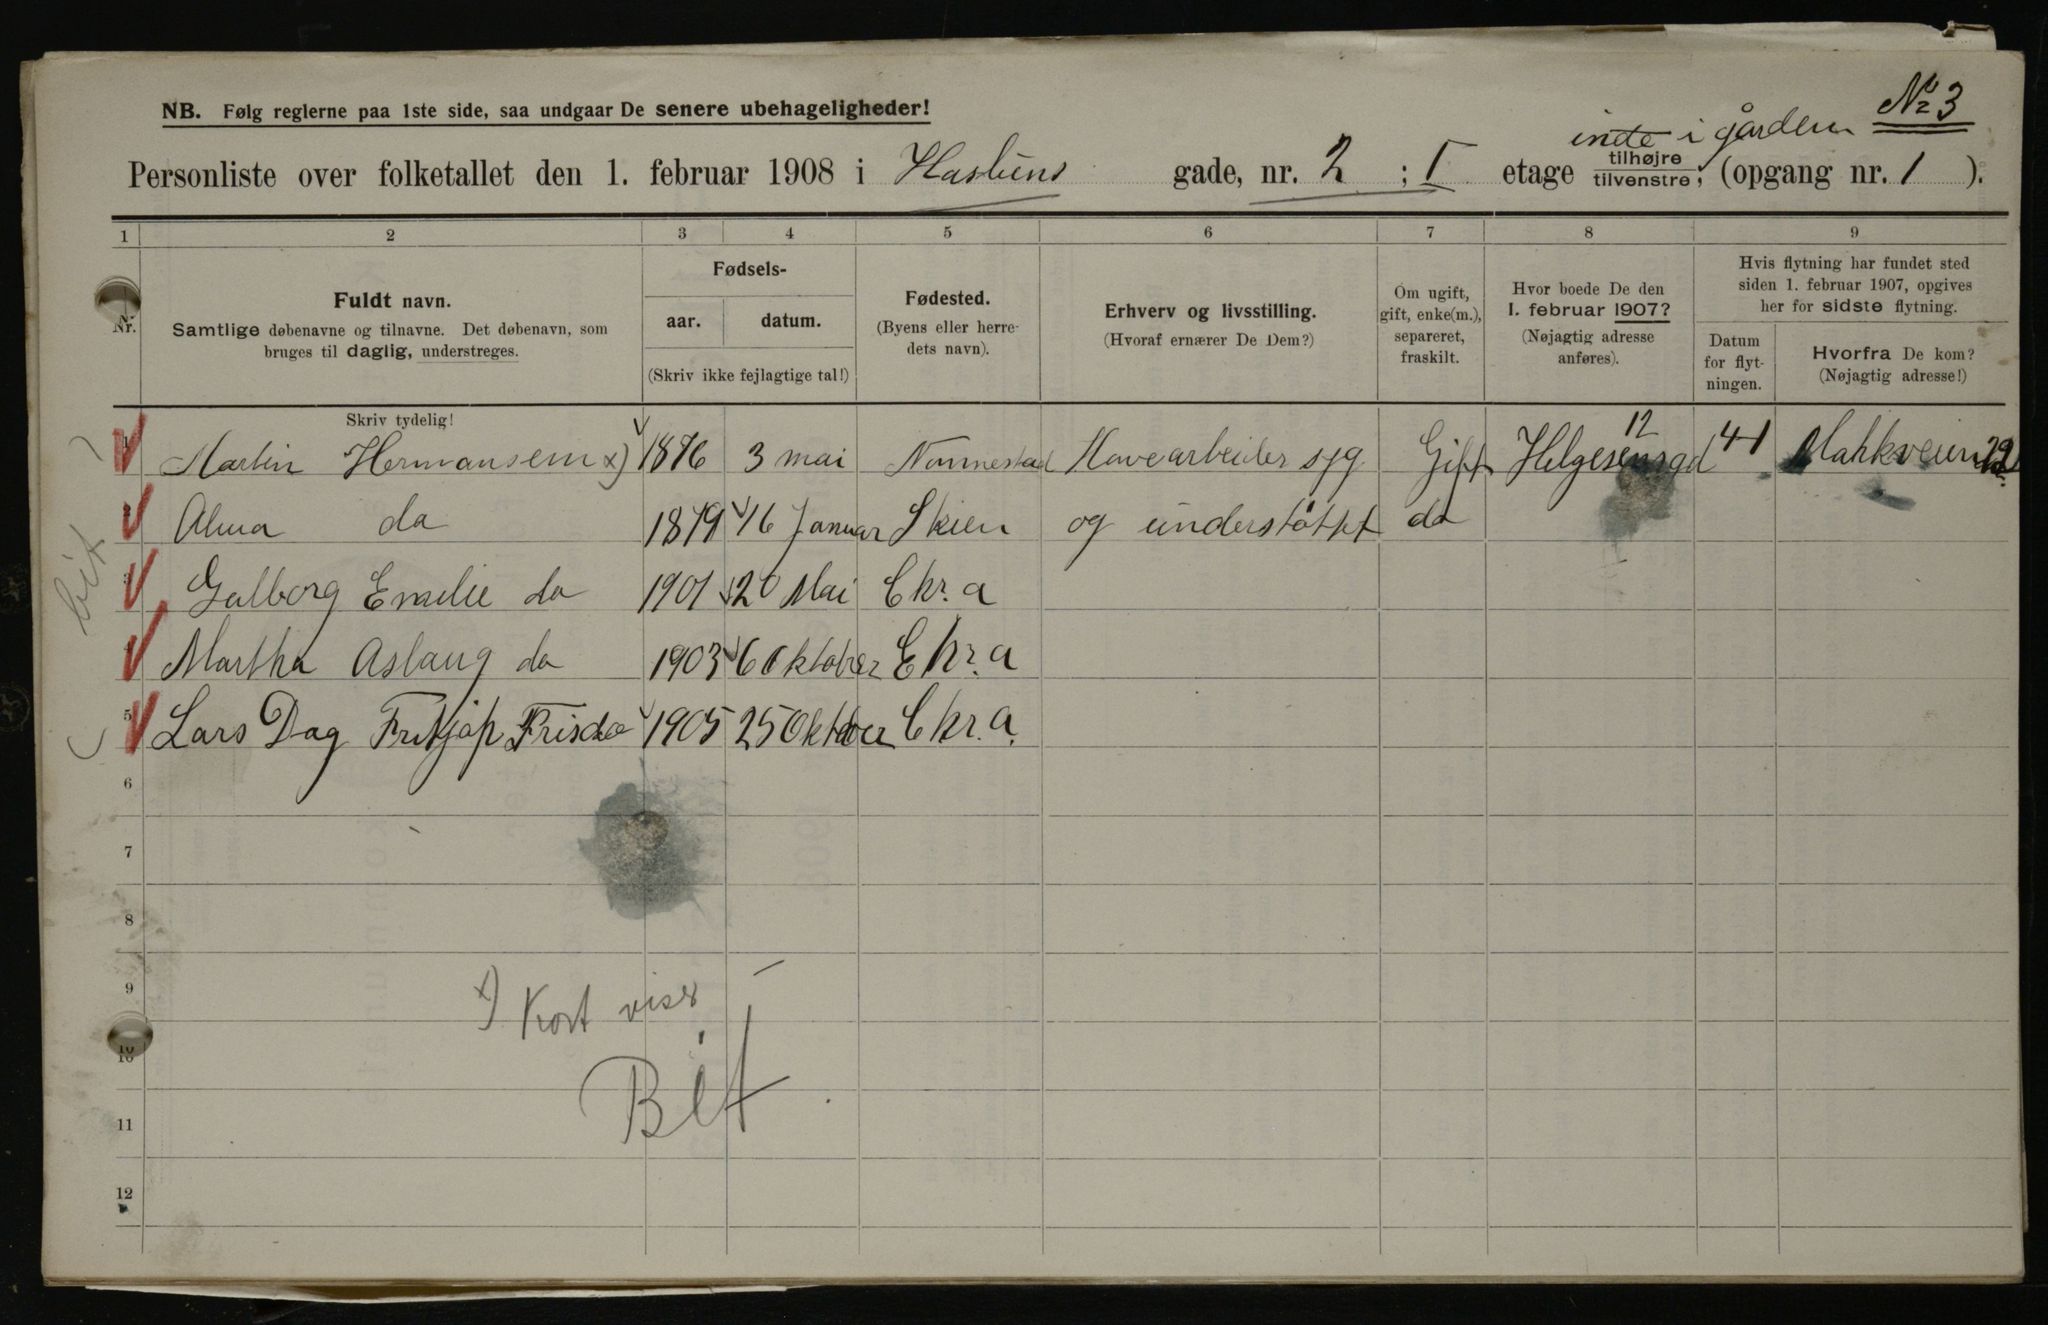 NB. Følg reglerne paa 1ste side, saa undgaar De senere ubehageligheder!
No 3
inde i gården
Personliste over folketallet den 1. februar 1908 i Haslums gade, nr. 2 ; I etage tilhøjre tilvenstre, (opgang nr. 1 ).
1 2 3 4 5 6 7 8 9
Nr.
Fuldt navn.
Samtlige døbenavne og tilnavne. Det døbenavn, som
bruges til daglig, understreges.
Fødsels-
aar. datum.
(Skriv ikke fejlagtige tal!)
Fødested.
(Byens eller herre-
dets navn).
Erhverv og livsstilling.
(Hvoraf ernærer De Dem?)
Om ugift,
gift, enke(m.),
separeret,
fraskilt.
Hvor boede De den
1. februar 1907?
(Nøjagtig adresse
anføres).
Hvis flytning har fundet sted
siden 1. februar 1907, opgives
her for sidste flytning.
Datum
for flyt-
ningen.
Hvorfra De kom?
(Nøjagtig adresse!)
Skriv tydelig!
1 Martin Hermansen x) 1876 3 mai Nonnestad Havearbeider syg Gift Helgesensgd 12 4-1
2 Alma do 1879 16 Januar Skien og understøttet do
3 Emilie do 1901 20 Mai Chr. a
4 Martha Aslaug do 1903 6 Oktober Chr. a
5 Lars Dag Fritjof 1905 25 Oktober Chr. a.
bit
6
7
8
9
x) Kort viser
10
Bit
11
12